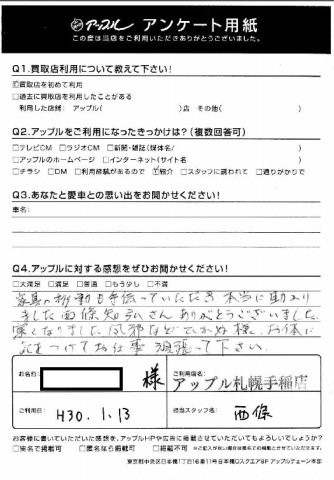 アップル アンケート用紙
この度は当店をご利用いただきありがとうございました。
Q1.買取店利用について教えて下さい!
☑買取店を初めて利用
□過去に買取店を利用したことがある
利用した店舗: アップル( )店 その他( )
Q2.アップルをご利用になったきっかけは?(複数回答可)
□テレビCM □ラジオCM □新聞・雑誌(媒体名/ )
□アップルのホームページ □インターネット(サイト名 )
□チラシ □DM □利用経験があるので ☑紹介 □スタッフに誘われて □通りがかりで
Q3.あなたと愛車との思い出をお聞かせください!
車名:
Q4.アップルに対する感想をぜひお聞かせください!
□大満足 □満足 □普通 □もう少し □不満
家具の移動も手伝っていただき 本当に助かり
ました 西條 さん ありがとうございました。
寒くなりました 風邪などひかぬ様、お体に
気をつけてお仕事 頑張って下さい。
お名前: 様
ご利用店名: アップル札幌手稲店
ご利用日: H30.1.13
担当スタッフ名: 西條
お客様に書いていただいた感想を、アップルHPや広告に掲載させていただいてもよろしいでしょうか?
□実名で掲載可 □匿名なら掲載可 □掲載不可 ※ご記入がない場合は匿名での掲載とさせていただきます。
東京都中央区日本橋1丁目16番11号日本橋Dスクエア9F アップルチェーン本部